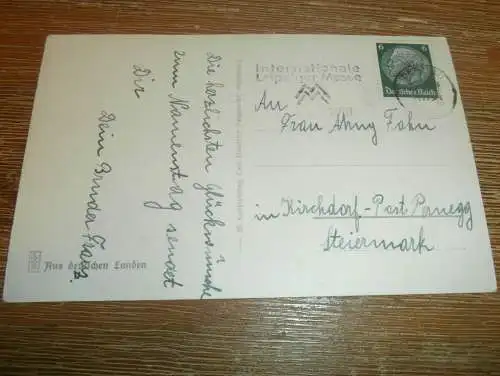 Die herzlichsten Glückwünsche
zum Namenstag sendet
Dir
Dein Bruder Franz.
Aus deutschen Landen
Internationale
Leipziger Messe
6 6
Deutsches Reich
An
Frau
in Kirchdorf-Post Pernegg
Steiermark